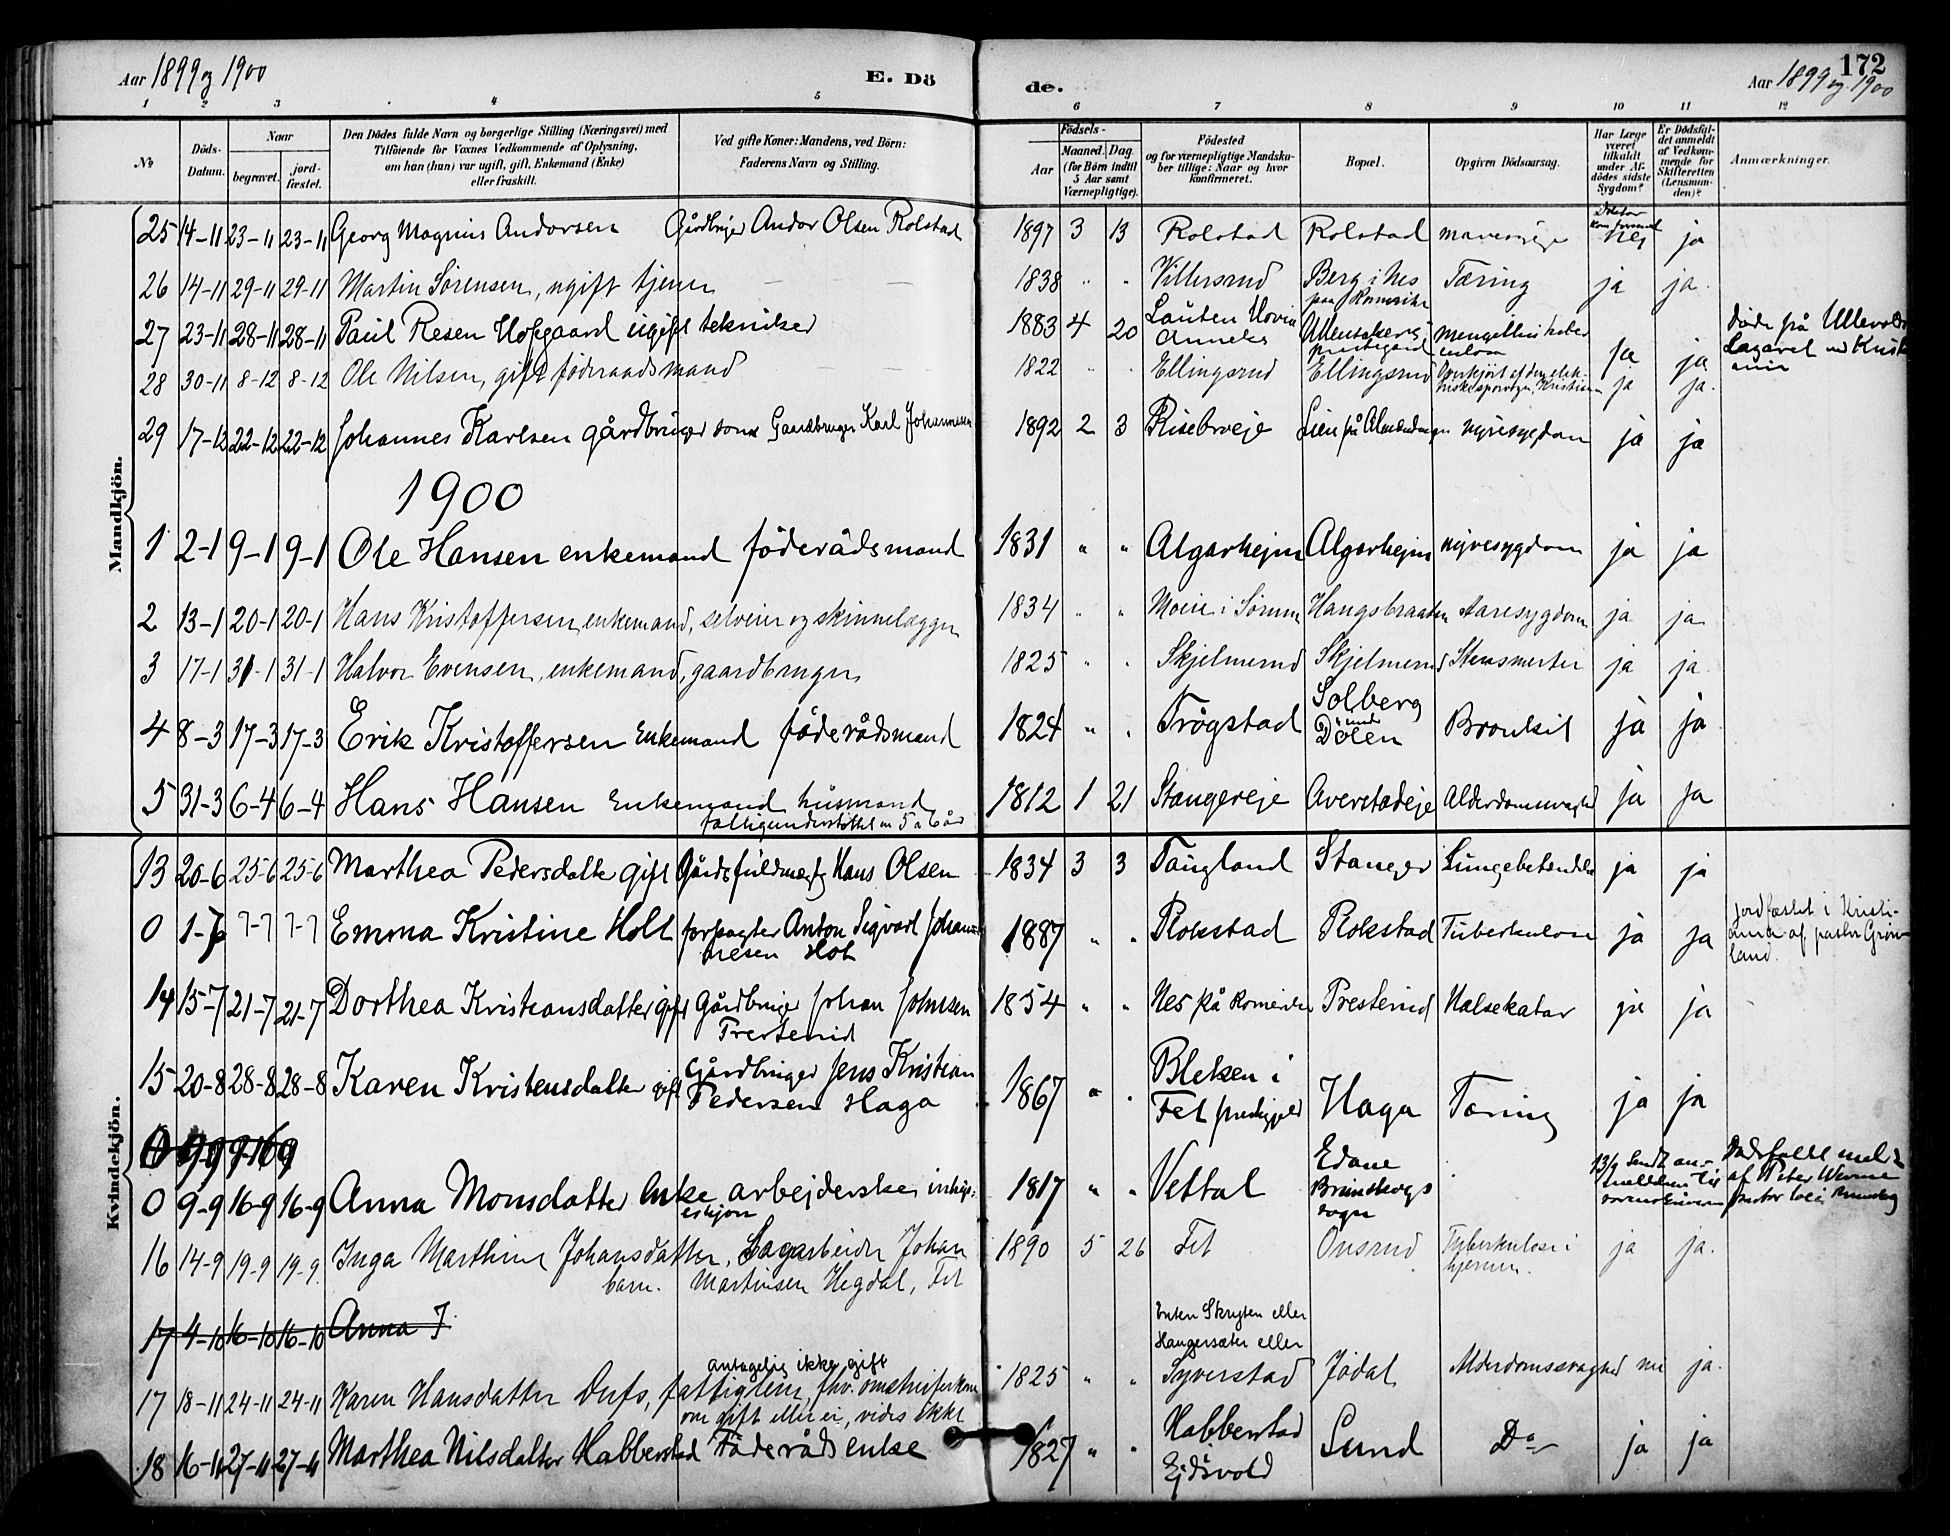 Aar 1899 og 1900 E. Dö de. Aar 1899 og 1900 172
1 2 3 4 5 6 7 8 9 10 11 12
No
Döds-Datum.
Naar
begravet.
jord-fæstet.
Den Dödes fulde Navn og borgerlige Stilling (Næringsvei) med
Tilföiende for Voxnes Vedkommende af Oplysning,
om han (hun) var ugift, gift, Enkemand (Enke)
eller fraskilt.
Ved gifte Koner: Mandens, ved Börn:
Faderens Navn og Stilling.
Födsels-
Aar
Maaned. Dag.
(for Börn indtil
5 Aar samt
Værnepligtige).
Födested
og for værnepligtige Mandska-
ber tillige: Naar og hvor
konfirmeret.
Bopæl.
Opgiven Dödsaarsag.
Har Læge
været
tilkaldt
under Af-
dödes sidste
Sygdom?
Er Dödsfal-
det anmeldt
af Vedkom-
mende for
Skifteretten
(Lensman-
den)?
Anmærkninger.
Mandkjön.
25 14-11 23-11 23-11 Georg Magnus Andorsen Gårdbruger Andor Olsen Rolstad 1897 3 13 Rolstad Rolstad nei ja
26 14-11 29-11 29-11 Martin Sörensen, ugift tjener 1838 " " Villersrud Berg i Nes paa Romerike Tæring ja ja.
27 23-11 28-11 28-11 Paul Resen Hofgaard ugift tekniker 1883 4 20 Ullensakers prestegaard ja ja Döde på Ullevold Lazaret ved Kristiania
28 30-11 8-12 8-12 Ole Nilsen, gift föderaadsmand 1822 " " Ellingsrud Ellingsrud Overkjört af den elektriske sporvogn, Kristiania ja ja.
29 17-12 22-12 22-12 Johannes Karlsen gårdbruger sönn Gaardbruger Karl Johannesen 1892 2 3 Risebroeje nyresygdom ja ja
1900
1 2-1 9-1 9-1 Ole Hansen enkemand föderådsmand 1831 " " Algarhejm Algarhejm nyresygdom ja ja
2 13-1 20-1 20-1 Hans Kristoffersen, enkemand, selveier og skinnelægger 1834 " " Moen i Sörum Hangsbraaten Aaresygdom ja ja
3 17-1 31-1 31-1 Halvor Evensen, enkemand, gaardbruger 1825 " " Skjelmerud Skjelmerud Stensmerter ja ja.
4 8-3 17-3 17-3 Erik Kristoffersen Enkemand föderådsmand 1824 " " Trögstad Solberg und Dölen Bronkit ja ja
5 31-3 6-4 6-4 Hans Hansen Enkemand husmand fattigunderstöttet en 5 a 6 år 1812 1 21 Stangereje Averstadeje Alderdomsvaghed ja ja
Kvindekjön.
13 20-6 25-6 25-6 Marthea Pedersdatter gift Gårdsfuldmægtig Hans Olsen 1834 3 3 Taugland Stanger Lungebetændelse ja ja
0 1-7 7-7 7-7 Emma Kristine Holt forpagter Anton Sigvart Johannesen Holt 1887 " " Rokstad Rokstad Tuberkulose ja ja jordfæstet i Kristiania af pastor Grönland.
14 15-7 21-7 21-7 Dorthea Kristiansdatter gift Gårdbruger Johan Johnsen Presterud 1854 " " Nes på Romerike Presterud Halsekatar ja ja
15 20-8 28-8 28-8 Karen Kristensdatter gift Gårdbruger Jens Kristian Pedersen Haga 1867 " " Bleken i Fet Haga Tæring ja ja
0 9-9 16-9 16-9 Anna Monsdatter Enke arbejderske 1817 " " Vettal Edane Brunsbergs sogn Dödsfaldet meldt af Peter Werme
16 14-9 19-9 19-9. Inga Marthine Johansdatter, barn. Sagarbeider Johan Martinsen Hegdal, Fet 1890 5 26 Fet Onsrud Tuberkulose i hjernen. ja ja.
17 4-10 16-10 16-10 Anna J
17 18-11 24-11 24-11 Karen Hansdatter Dufs, fattiglem, fhv. omstreiferkone antagelig ikke gift om gift eller ei, vides ikke 1825 " " Enten Skrysten eller Haugersæter eller Syverstad Jödal Alderdomssvaghed nei ja.
18 16-11 27-11 27-11 Marthea Nilsdatter Habberstad Föderådsenke 1827 " " Habberstad i Ejdsvold Sund Do ja ja